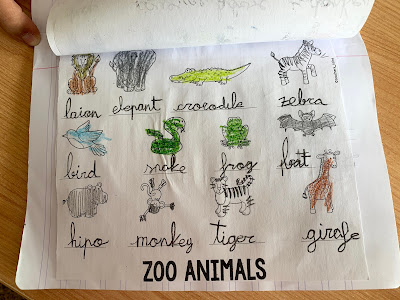 laion elepant crocodile zebra
bird snake frog bat
hipo monkey tiger girafe
ZOO ANIMALS